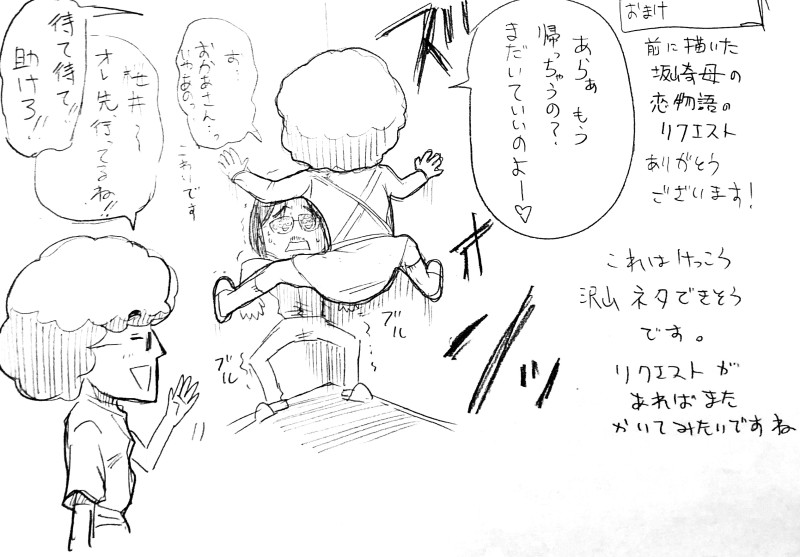 おまけ
前に描いた
坂崎母の
恋物語の
リクエスト
ありがとう
ございます!
これはけっこう
沢山 ネタできそう
です。
リクエストが
あればまた
かいてみたいですね
ズズ
あらぁ もう
帰っちゃうの?
まだいていいのよー♡
す…
おかあさん…っ
じゃあのっ
これりです
桜井〜
オレ先、行ってるね!!
待て待て
助けろ!!
ブル
ブル